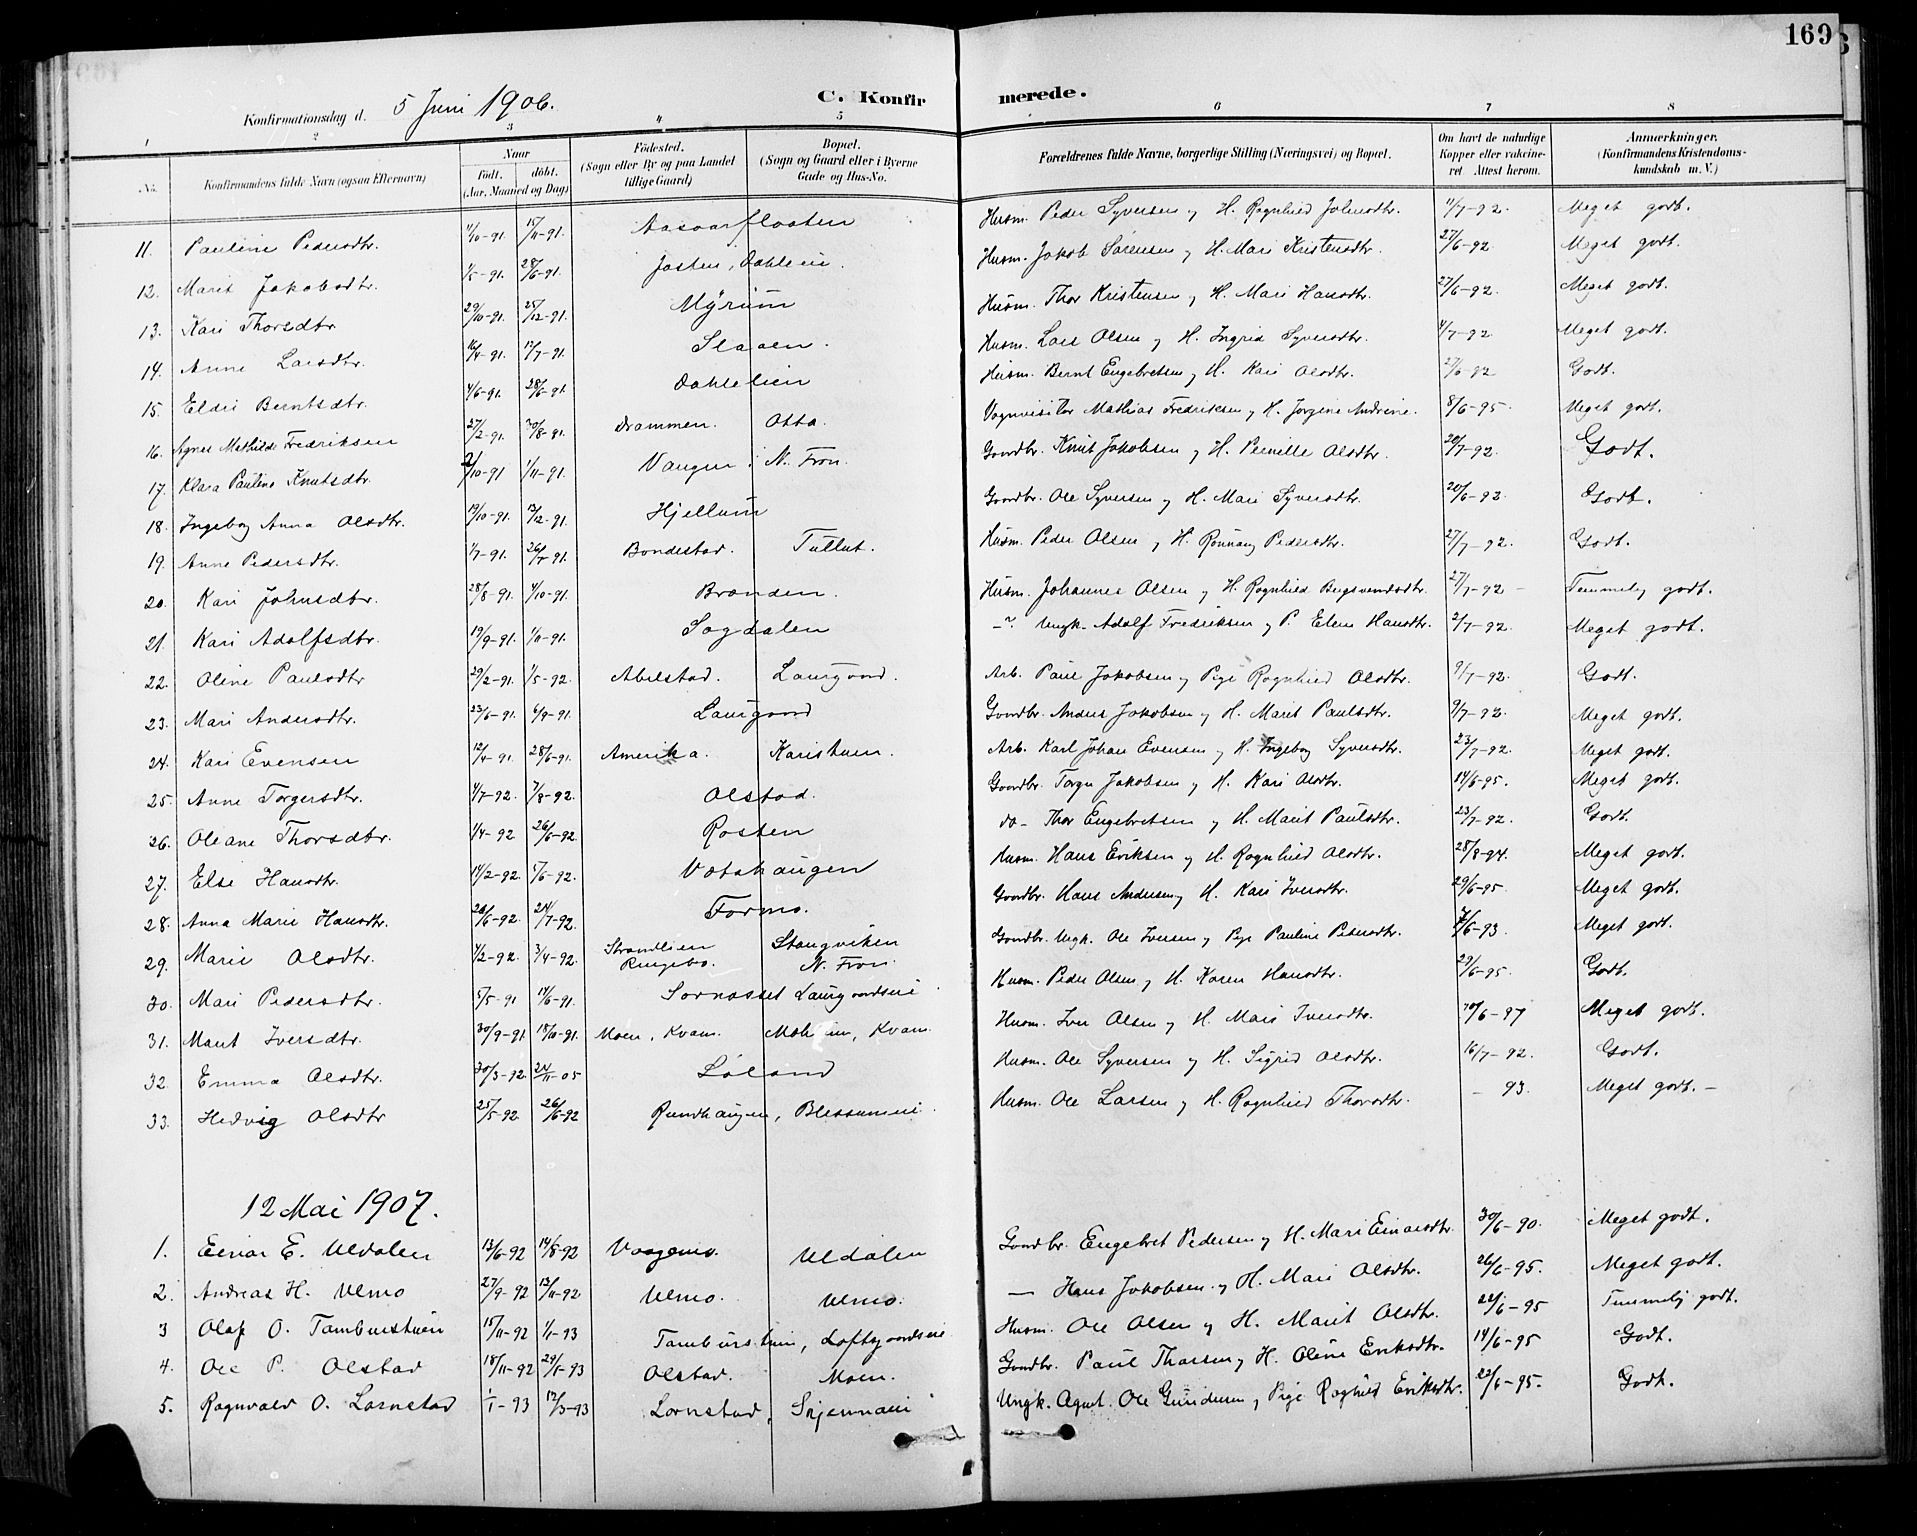 169
Konfirmationsdag d. 5 Juni 1906. C. Konfirmerede.
1 2 3 4 5 6 7 8
No. Konfirmandens fulde Navn (ogsaa Efternavn) Naar født. døbt. (Aar, Maaned og Dag) Fødested. (Sogn eller By og paa Landet tillige Gaard) Bopæl. (Sogn og Gaard eller i Byerne Gade og Hus-No. Forældrenes fulde Navne, borgerlige Stilling (Næringsvei) og Bopæl. Om havt de naturlige Kopper eller vakcineret. Attest herom. Anmærkninger. (Konfirmandens Kristendomskundskab m. V.)
11. Pauline Pedersdtr. 11/10-91. 15/11-91. Aasaarflaaten Husm. Peder Syversen og H. Ragnhild Johnsdtr. 11/7-92. Meget godt.
12. Marit Jakobsdtr. 1/5-91. 28/6-91. Jasten, Dahleie. Husm. Jakob Sørensen og H. Mari Kristensdtr. 27/6-92. Meget godt.
13. Kari Thorsdtr. 29/10-91. 25/12-91. Myrum Husm. Thor Kristensen og H. Mari Hansdtr. 27/6-92. Meget godt.
14. Anne Larsdtr. 16/4-91. 17/7-91. Slaaen. Husm. Lars Olsen og H. Ingrid Syversdtr. 4/7-92. Meget godt.
15. Eldri Berntsdtr. 4/6-91. 28/6-91. Dahlelien Husm. Bernt Engebretsen og H. Kari Olsdtr. 27/6-92 Godt.
16. Agnes Mathilde Fredriksen 27/2-91. 30/8-91. Drammen. Otta. Vognvisitør Mathias Fredriksen og H. Jørgine Andrine. 8/6-95. Meget godt.
17. Klara Pauline Knutsdtr. 2/10-91 1/11-91. Vangen i N. Fron. Gaardbr. Knut Jakobsen og H. Pernille Olsdtr. 20/7-92. Godt.
18. Ingebog Anna Olsdtr. 19/10-91. 13/12-91. Hjellum Gaardbr. Ole Syversen og H. Mari Syversdtr. 20/6-92. Godt.
19. Anne Pedersdtr. 1/7-91. 26/7-91. Bondestad. Tullut. Husm. Peder Olsen og H. Rønnaug Pedersdtr. 27/7-92. Godt.
20. Kari Johnsdtr. 28/8-91. 4/10-91. Brænden. Husm. Johannes Olsen og H. Ragnhild Bergsvendsdtr. 27/7-92 - Temmelig godt.
21. Kari Adolfsdtr. 19/9-91. 1/11-91. Sogdalen -"- Ungk. Adolf Fredriksen og P. Elen Hansdtr. 2/7-92. Meget godt.
22. Oline Paulsdtr 29/2-91. 1/5-92. Abelstad. Laurgaard. Arb. Paul Jakobsen og Pige Ragnhild Olsdtr. 9/7-92. Godt.
23. Mari Andersdtr. 23/6-91. 6/9-91. Laurgaard Gaardbr. Anders Jakobsen og H. Marit Paulsdtr. 9/7-92. Meget godt.
24. Kari Evensen 12/4-91. 28/6-91. Amerika. Karistuen. Arb. Karl Johan Evensen og H. Ingebog Syversdtr. 23/7-92. Meget godt.
25. Anne Torgersdtr. 4/7-92. 7/8-92. Olstad. Gaardbr. Torger Jakobsen og H. Kari Olsdtr. 14/6-95. Meget godt.
26. Oleane Thorsdtr. 1/4-92 26/6-92. Rosten do- Thor Engebretsen og H. Marit Paulsdtr. 23/7-92. Godt.
27. Else Hansdtr. 14/2-92. 5/6-92. Votahaugen Husm. Hans Eriksen og H. Ragnhild Olsdtr. 28/8-94. Meget godt.
28. Anna Marie Hansdtr. 26/6-92. 24/7-92. Formo. Gaardbr. Hans Andersen og H. Kari Iversdtr. 29/6-95. Meget godt.
29. Marie Olsdtr. 4/2-92. 3/4-92. Strandlien Ringebo. Stangviken N. Fron. Gaardbr. Ungk. Ole Iversen og Pige Pauline Pedersdtr. /6-93. Meget godt.
30. Mari Pedersdtr. 5/5-91 14/6-91. Sornæsset Laurgaardseie. Husm. Peder Olsen og H. Karen Hansdtr. 29/6-95. Godt.
31. Marit Iversdtr. 30/9-91. 18/10-91. Moen, Kvam. Moheim, Kvam. Husm. Iver Olsen og H. Mari Iversdtr. 10/6-97 Meget godt.
32. Emma Olsdtr. 30/3-92. 24/11-05 Løland Husm. Ole Syversen og H. Sigrid Olsdtr. 16/7-92. Godt.
33. Hedvig Olsdtr 25/5-92 26/6-92 Rundhaugen, Blessumeie. Husm. Ole Larsen og H. Ragnhild Thorsdtr. - 93. Meget godt. -
12 Mai 1907.
1. Einar E. Uldalen 13/6-92 14/8-92 Vaagemo. Uldalen Gaardbr. Engebret Pedersen og H. Mari Einarsdtr. 30/6-90. Meget godt.
2. Andreas H. Ulmo 27/9-92 13/11-92 Ulmo. Ulmo. — Hans Jakobsen og H. Mari Olsdtr. 26/6-95. Meget godt.
3 Olaf O. Tamburstuen 15/11-92 1/1-93 Tamburstuen, Loftsgaardseie Husm. Ole Olsen og H. Marit Olsdtr. 22/6-95 Temmelig godt.
4. Ole P. Olstad 18/11-92 29/1-93 Olstad. Moen. Gaardbr. Paul Thorsen og H. Oline Eriksdtr. 14/6-95 Godt.
5. Ragnvald O. Lornstad 1/1-93 12/3-93 Lornstad, Skjennaeie Ungk. Agent. Ole Gundersen og Pige Raghild Eriksdtr. 22/6-95. Godt.